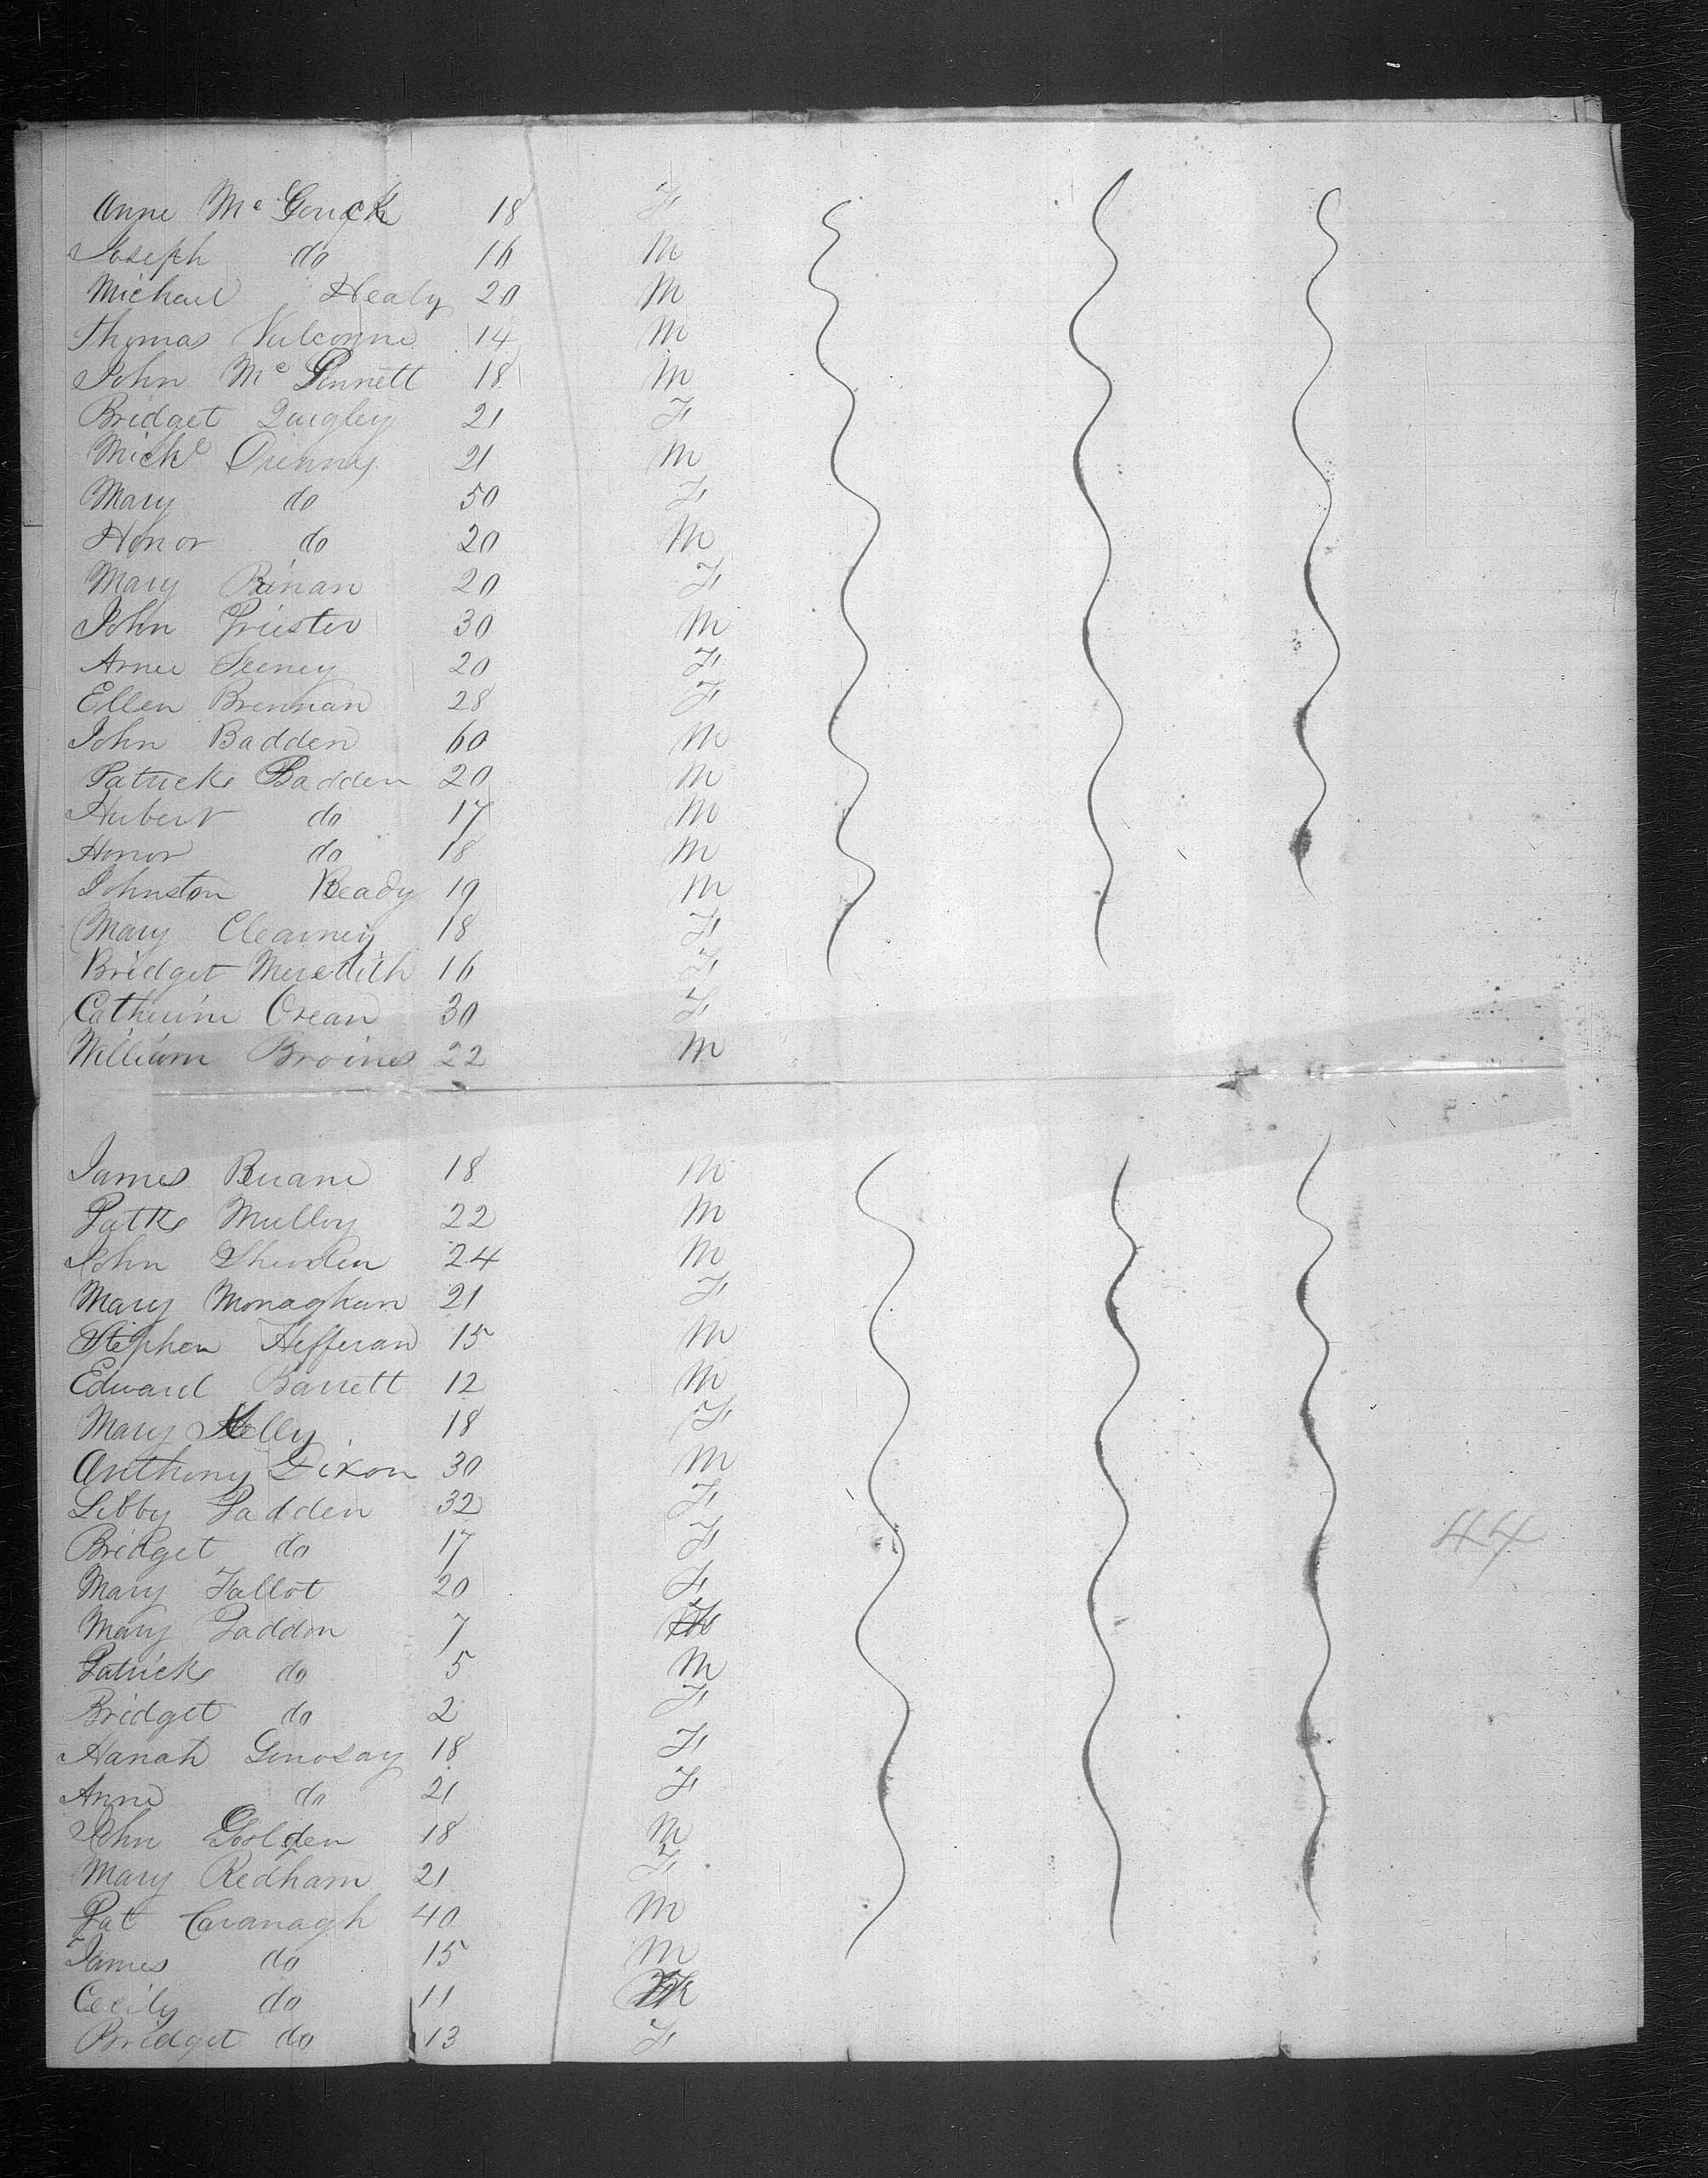 Anne Mc Gouck 18 F
Joseph do 16 M
Michael Healy 20 M
Thomas Vulcogne 14 M
John Mc Pinnett 18 M
Bridget Quigley 21 F
Mick Dunny 21 M
Mary do 50 F
Honor do 20 M
Mary Rinan 20 F
John Priester 30 M
Anne Feeney 20 F
Ellen Brennan 28 F
John Badden 60 M
Patrick Badden 20 M
Hubert do 17 M
Honor do 18 M
Johnston Ready 19 M
Mary Clearney 18 F
Bridget Meredith 16 F
Catherine Orean 30 F
William Broines 22 M
James Ruane 18 M
Patk Mulloy 22 M
John 24 M
Mary Monaghan 21 F
Stephen Hefferan 15 M
Edward Barrett 12 M
Mary Kelly 18 F
Anthony Dixon 30 M
Libby Padden 32 F
Bridget do 17 F
Mary Fallot 20 F
Mary Paddon 7
Patrick do 5 M
Bridget do 2 F
44
Hanah Ginosay 18 F
Anne do 21 F
John Golden 18 M
Mary Redham 21 F
Pat Cavanagh 40 M
James do 15 M
Cecily do 11
Bridget do 13 F